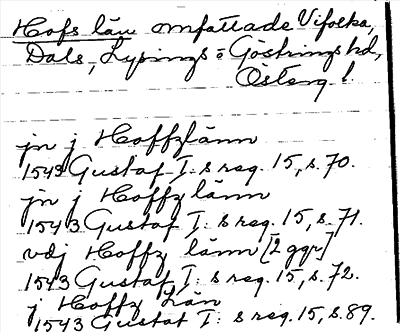 Hofs län omfattade Vifolka,
Dals, Lysings o Göstrings hd,
Österg l.
jn j Hoffzlänn
1543 Gustaf I: s reg. 15, s. 70.
jn j Hoffz länn
1543 Gustaf I: s reg. 15, s. 71.
vdj Hoffz länn [2 ggr]
1543 Gustaf I: s reg. 15, s. 72.
j Hoffz Län
1543 Gustaf I: s reg. 15, s. 89.